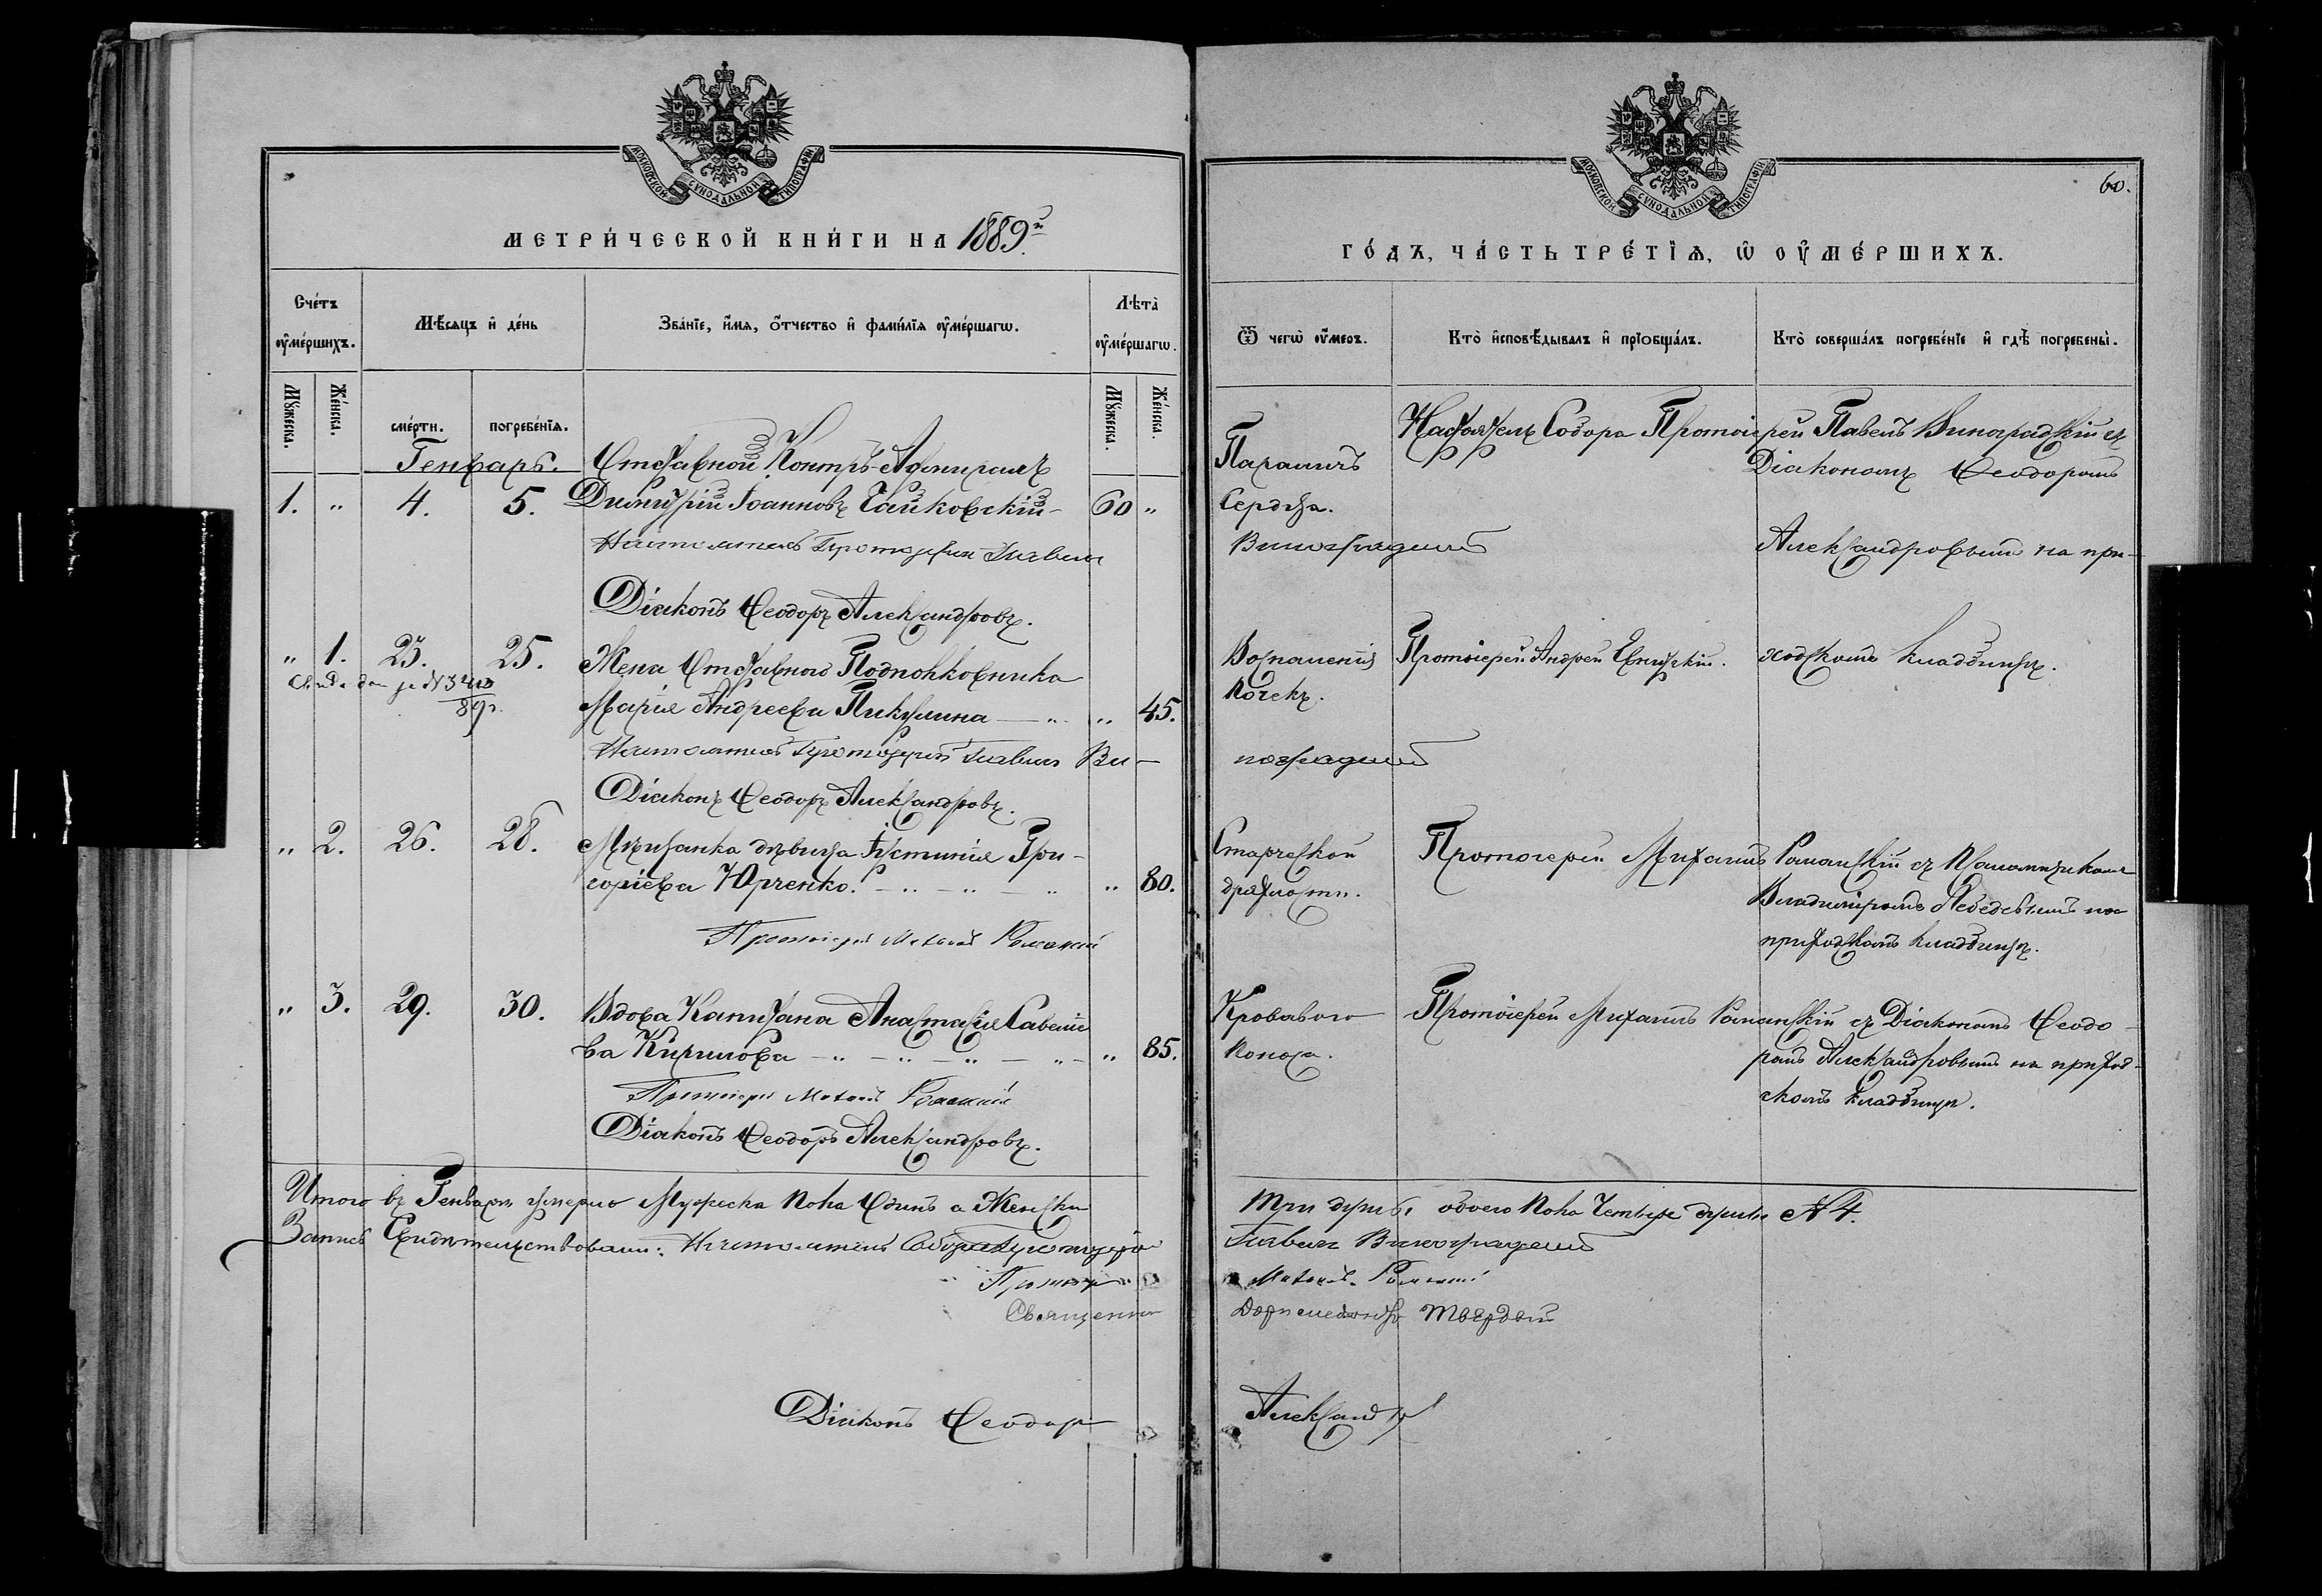 МОСКОВСКОЙ СУНОДАЛЬНОЙ ТИПОГРАФІИ
МЕТРИ́ЧЕСКОЙ КНИ́ГИ НА 1889й
Счéтъ ѹ҆ме́ршихъ.
Мѣ́сяцъ и҆ де́нь
Зва́нїе, и҆́мя, о҆́тчество и҆ фами́лїя ѹ҆ме́ршагѡ.
Лѣ́та ѹ҆ме́ршагѡ.
Мꙋ́жеска.
Же́нска.
сме́рти.
погребе́нїя.
Мꙋ́жеска.
Же́нска.
Генварь.
Отставной Контръ-Адмиралъ
1. " 4. 5. Димитрій Іоанновъ Чайковскій - 60 "
Настоятель Протоіерей Павелъ
Діаконъ Ѳеодоръ Александровъ.
" 1. 23. 25. Жена Отставного Подполковника
89г. Марія Андреева Пикулина — " " 45.
Настоятель Протоіерей Павелъ Ви-
Діаконъ Ѳеодоръ Александровъ.
" 2. 26. 28. Мѣщанка дѣвица Іустинія Гри-
горіева Юрченко. " 80.
Протоіерей Михаилъ Романскій
" 3. 29. 30. Вдова Капитана Анастасія Савеліе
ва Кирилова " 85.
Протоіерей Михаилъ Романскій
Діаконъ Ѳеодоръ Александровъ.
Итого въ Генварѣ умерло Мужеска пола Одинъ а Женска
Запись Свидѣтельствовали: Настоятель Собора Протоіерей
" Протоіер
Священни
Діаконъ Ѳеодор
МОСКОВСКОЙ СУНОДАЛЬНОЙ ТИПОГРАФІИ
60.
ГО́ДЪ, ЧА́СТЬ ТРЕ́ТЇѦ, Ѡ҆ ОУ҆МЕ́РШИХЪ.
Ѿ чегѡ̀ ѹ҆́меръ.
Кто̀ и҆сповѣ́дывалъ и҆ прїѡбща́лъ.
Кто̀ соверша́лъ погребе́нїе и҆ гдѣ̀ погребены̀.
Параличъ
Сердца.
Настоятель Собора Протоіерей Павелъ Виноградскій съ
Діакономъ Ѳеодоромъ
Виноградскій
Александровымъ на при-
Воспаленія
почекъ.
Протоіерей Андрей
ходскомъ кладбищѣ.
ноградскій
Старческой
дряхлости.
Протоіерей Михаилъ Романскій съ Псаломщикомъ
Владиміромъ Лебедевымъ на
приходскомъ кладбищѣ.
Кроваваго
поноса.
Протоіерей Михаилъ Романскій съ Діакономъ Ѳеодо-
ромъ Александровымъ на приход-
скомъ кладбищѣ.
три души, обоего пола Четыре души № 4.
Павелъ Виноградскій
Михаилъ Романскій
Доримедонтъ Твердой
Александр